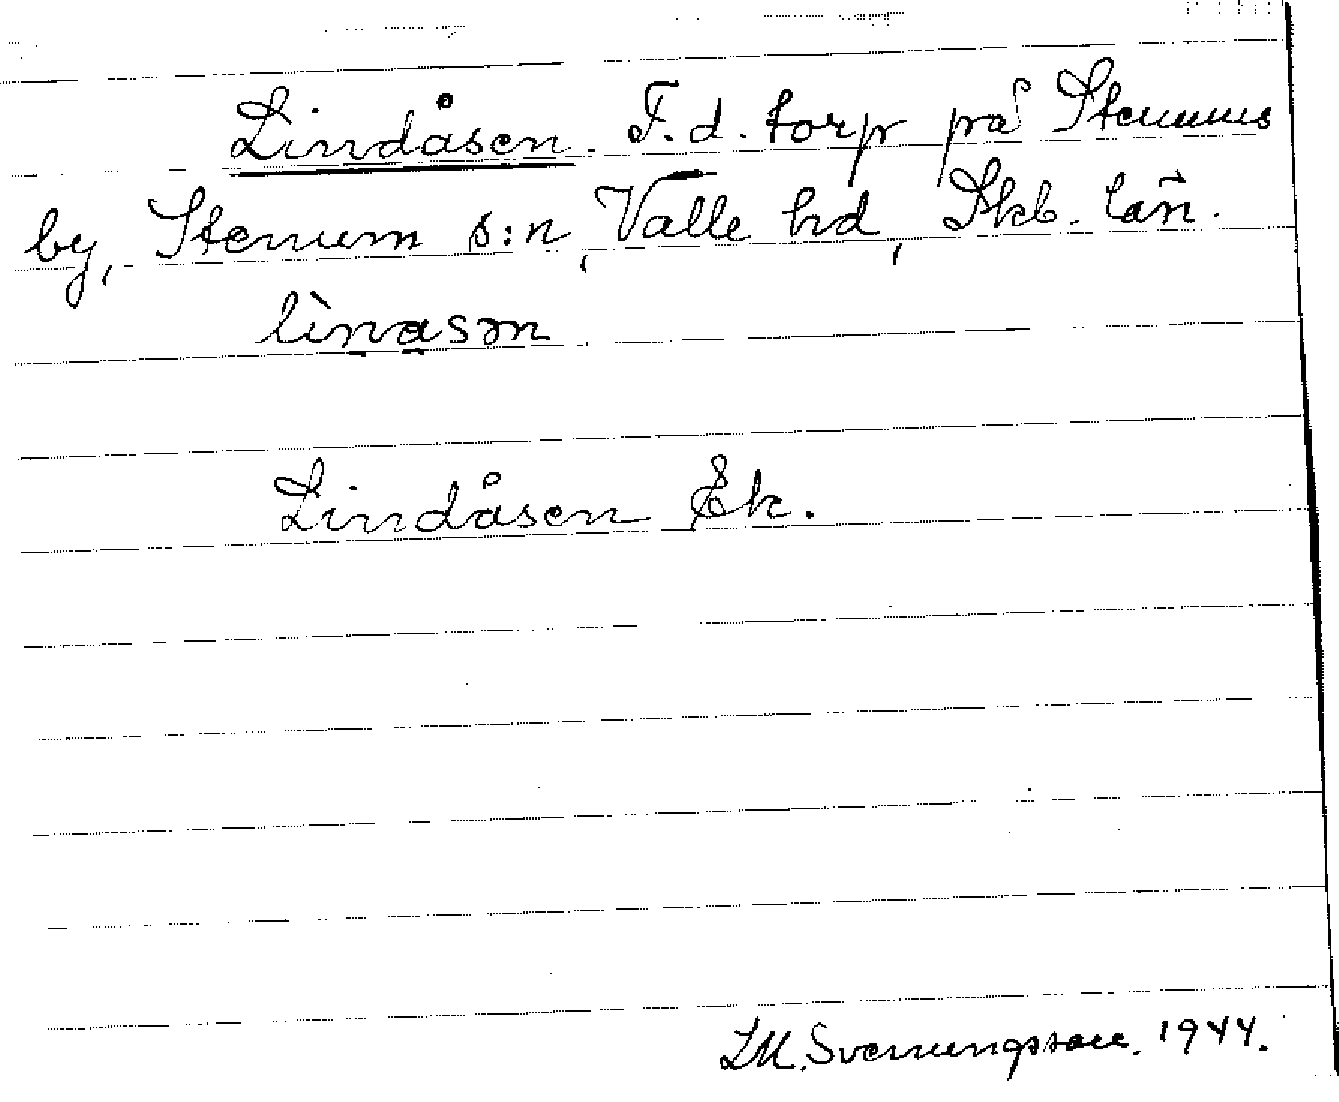 Lindåsen. F. d. torp på Stenums
by, Stenum s:n, Valle hd, Skb. län.
lìnasən
Lindåsen Ek.
I.M. Svenungsson. 1944.